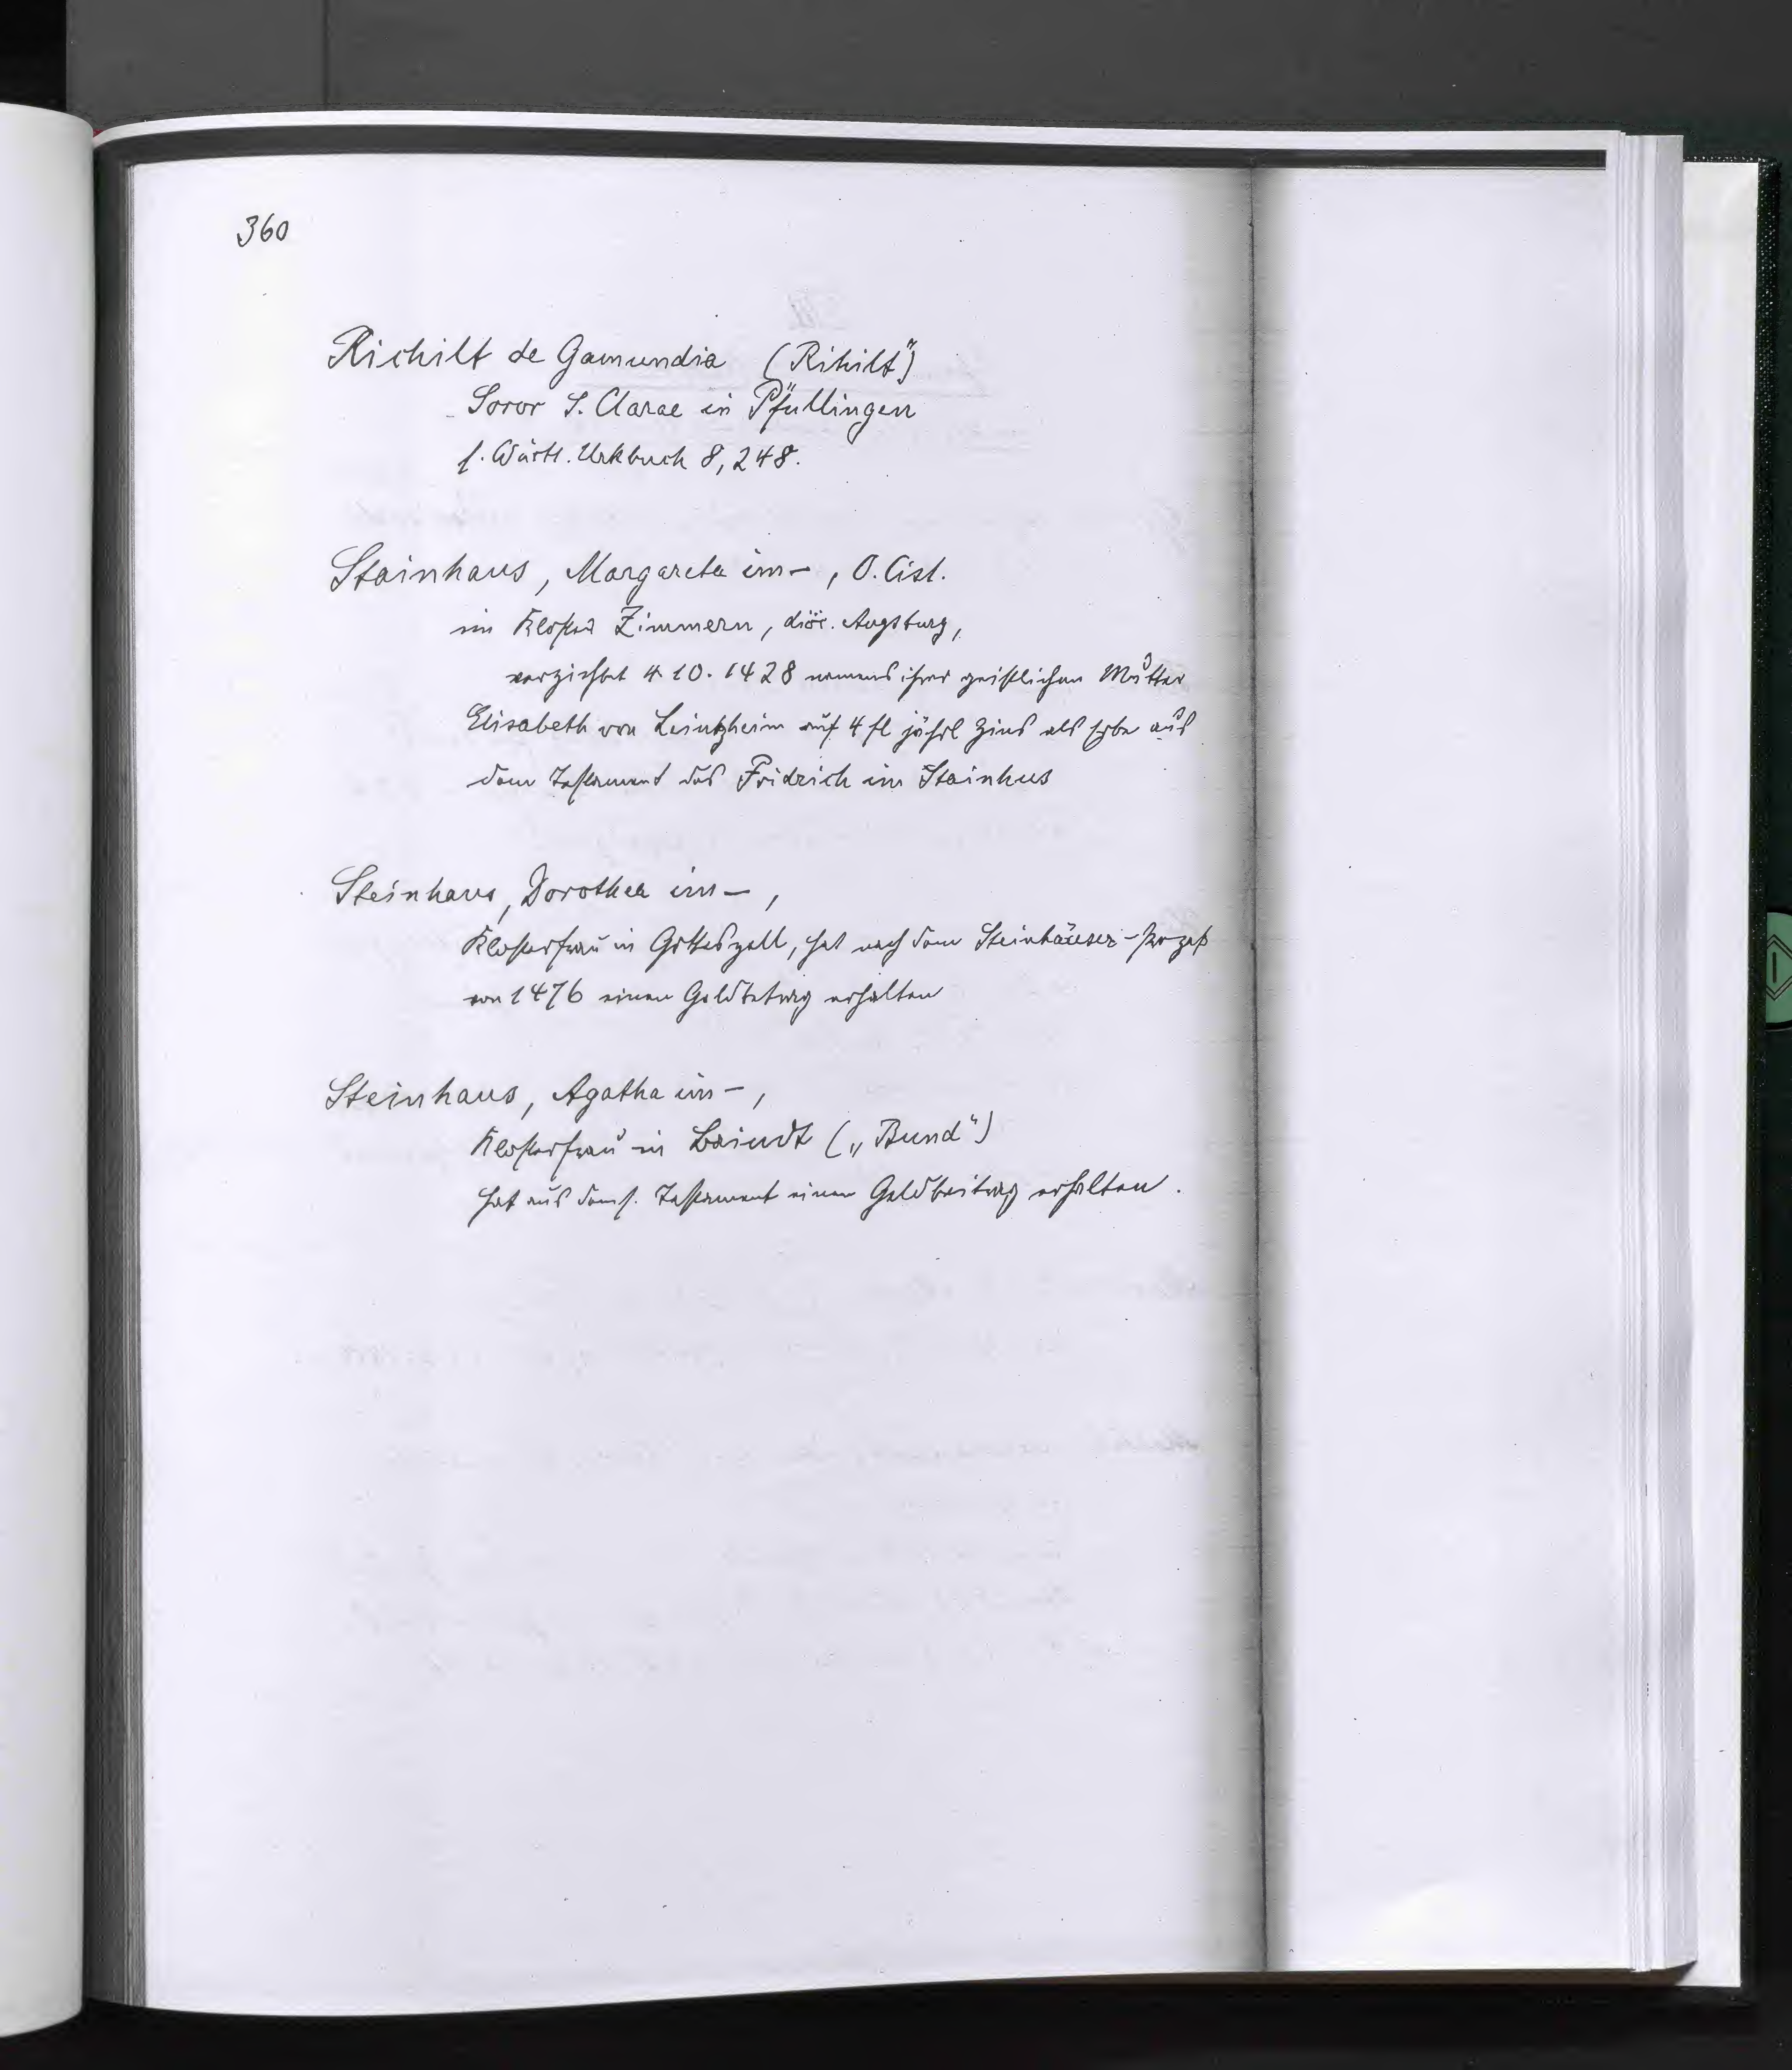 360
Richilt de Gamundia (Rihilt")
Soror S. Clarae in Pfullingen
s. Württ. Urkbuch 8, 248.
Stainhaus, Margareta im –, O. Cist.
im Kloster Zimmern, diöc. Augsburg,
verzichtet 4.10.1428 namens ihrer geistlichen Mutter
Elisabeth von Leintzheim auf 4 fl jährl Zins als Erbe aus
dem Testament des Fridrich im Stainhus
Steinhaus, Dorothea im –,
Klosterfrau in Gotteszell, hat nach dem Steinhäuser-Prozeß
von 1476 einen Geldbetrag erhalten
Steinhaus, Agatha im –,
Klosterfrau in Baindt („Bund")
hat aus dems. Testament einen Geldbeitrag erhalten.